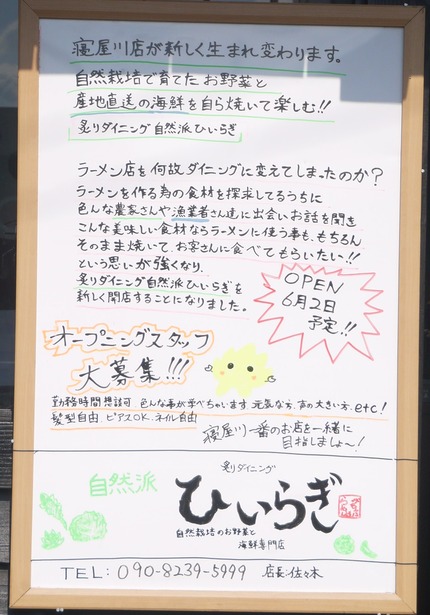 寝屋川店が新しく生まれ変わります。
自然栽培で育てたお野菜と
産地直送の海鮮を自ら焼いて楽しむ!!
炙りダイニング自然派ひいらぎ
ラーメン店を何故ダイニングに変えてしまったのか?
ラーメンを作る為の食材を探求してるうちに
色んな農家さんや漁業者さん達に出会いお話を聞き
こんな美味しい食材ならラーメンに使う事も、もちろん
そのまま焼いて、お客さんに食べてもらいたい!!
という思いが強くなり、
炙りダイニング自然派ひいらぎを
新しく開店することになりました。
OPEN
6月2日
予定!!
オープニングスタッフ
大募集!!!
勤務時間想談可 色んな事が学べちゃいます 元気な方、声の大きい方、etc!
髪型自由、ピアスOK、ネイル自由
寝屋川一番のお店を一緒に
目指しましょ〜!
炙りダイニング
自然派
ひいらぎ
自然栽培のお野菜と
海鮮専門店
TEL: 090-8239-5999 店長:佐々木